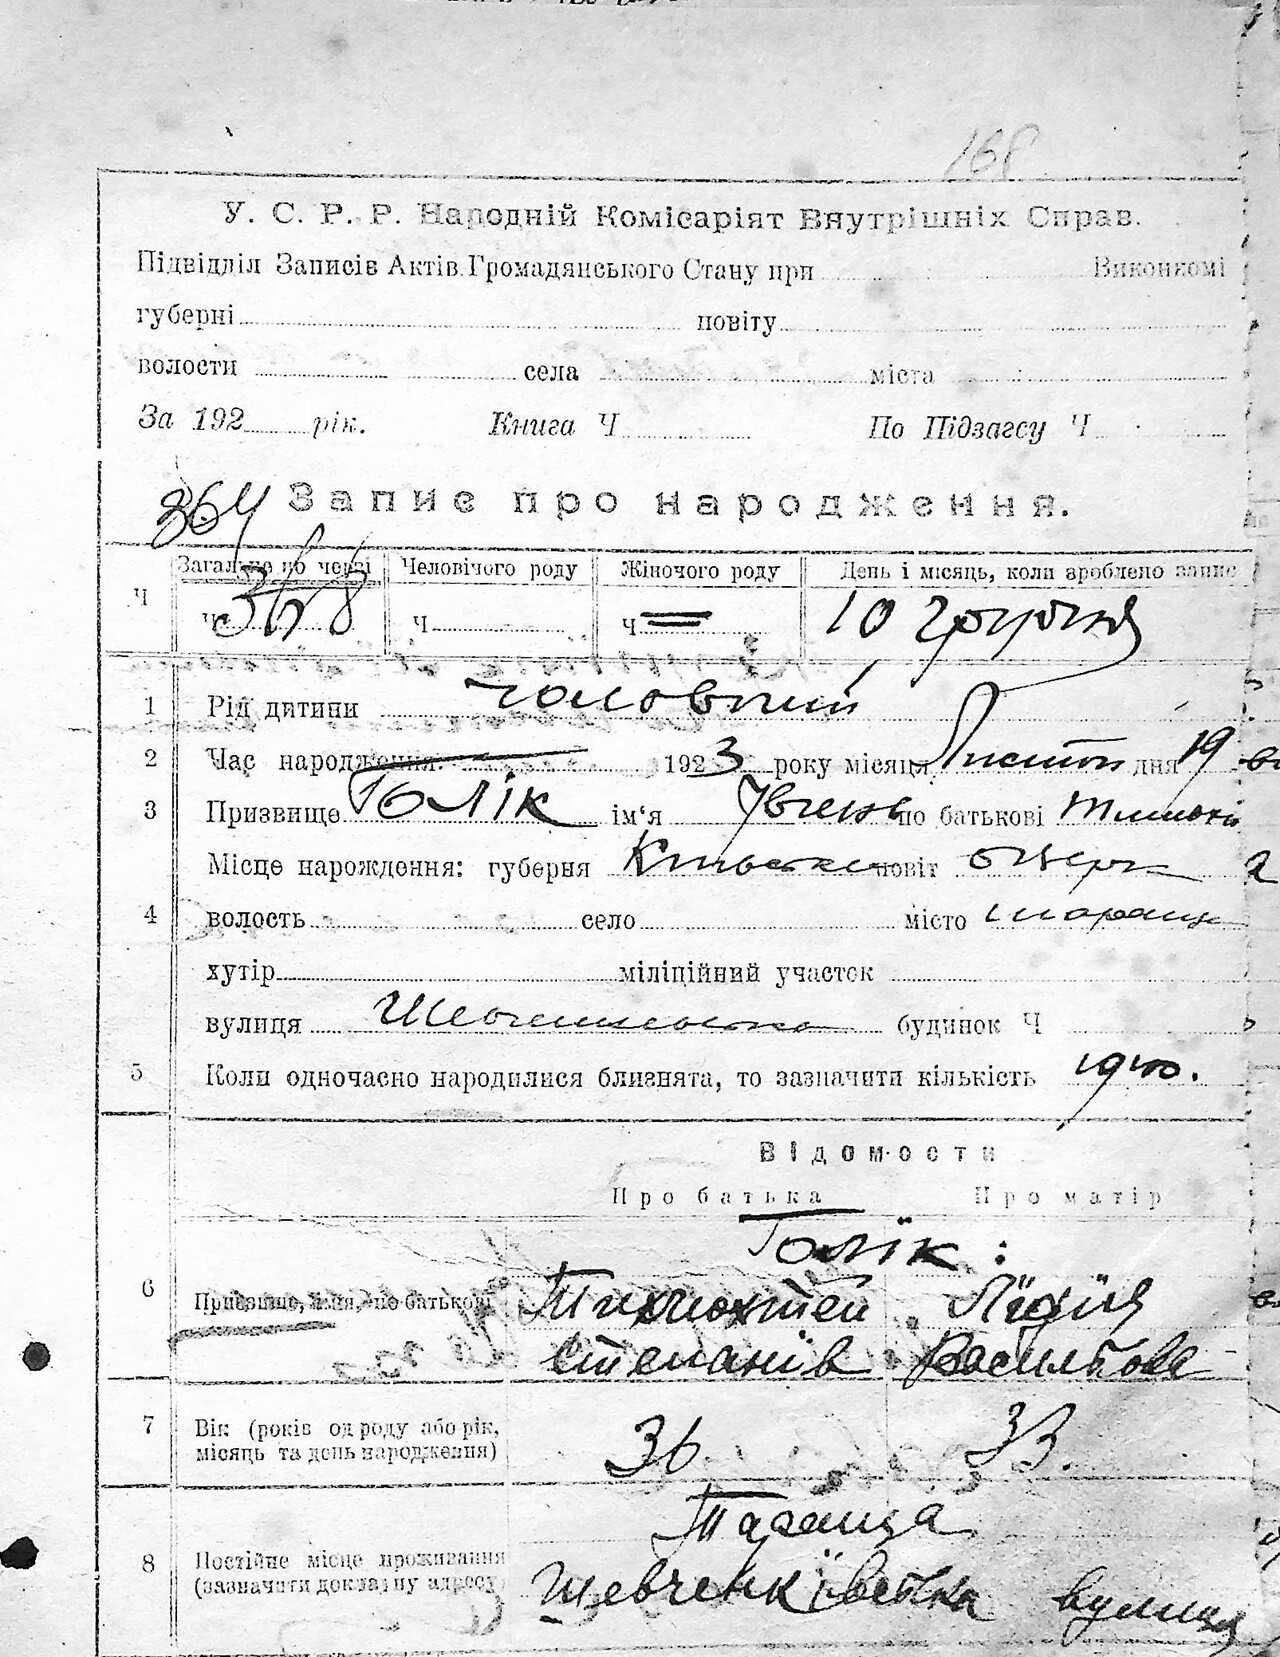 168
У. С. Р. Р. Народній Комісаріят Внутрішніх Справ.
Підвідділ Записів Актів Громадянського Стану при Виконкомі
губерні повіту
волости села міста
За 192 рік. Книга Ч По Підзагсу Ч
364 Запис про народження.
Ч Загальне по черзі Человічого роду Жіночого роду День і місяць, коли зроблено запис
Ч 368 Ч Ч = 10 грудня
1 Рід дитини чоловічий
2 Час народження: 1923 року місяця Листоп дня 19
3 Призвище Голік ім'я по батькові
Місце нарождення: губерня Київська повіт
4 волость село місто Тараща
хутір міліційний участок
вулиця Шевченківська будинок Ч
5 Коли одночасно народилися близнята, то зазначити кількість
Відомости
Про батька Про матір
Голік:
6 Призвище, ім'я, по батькові Тимохтей Лідія
Степанів Василівна
7 Вік (років од роду або рік, місяць та день народження) 36 33.
Тараща
8 Постійне місце проживання (зазначити докладну адресу) Шевченківська вулиця